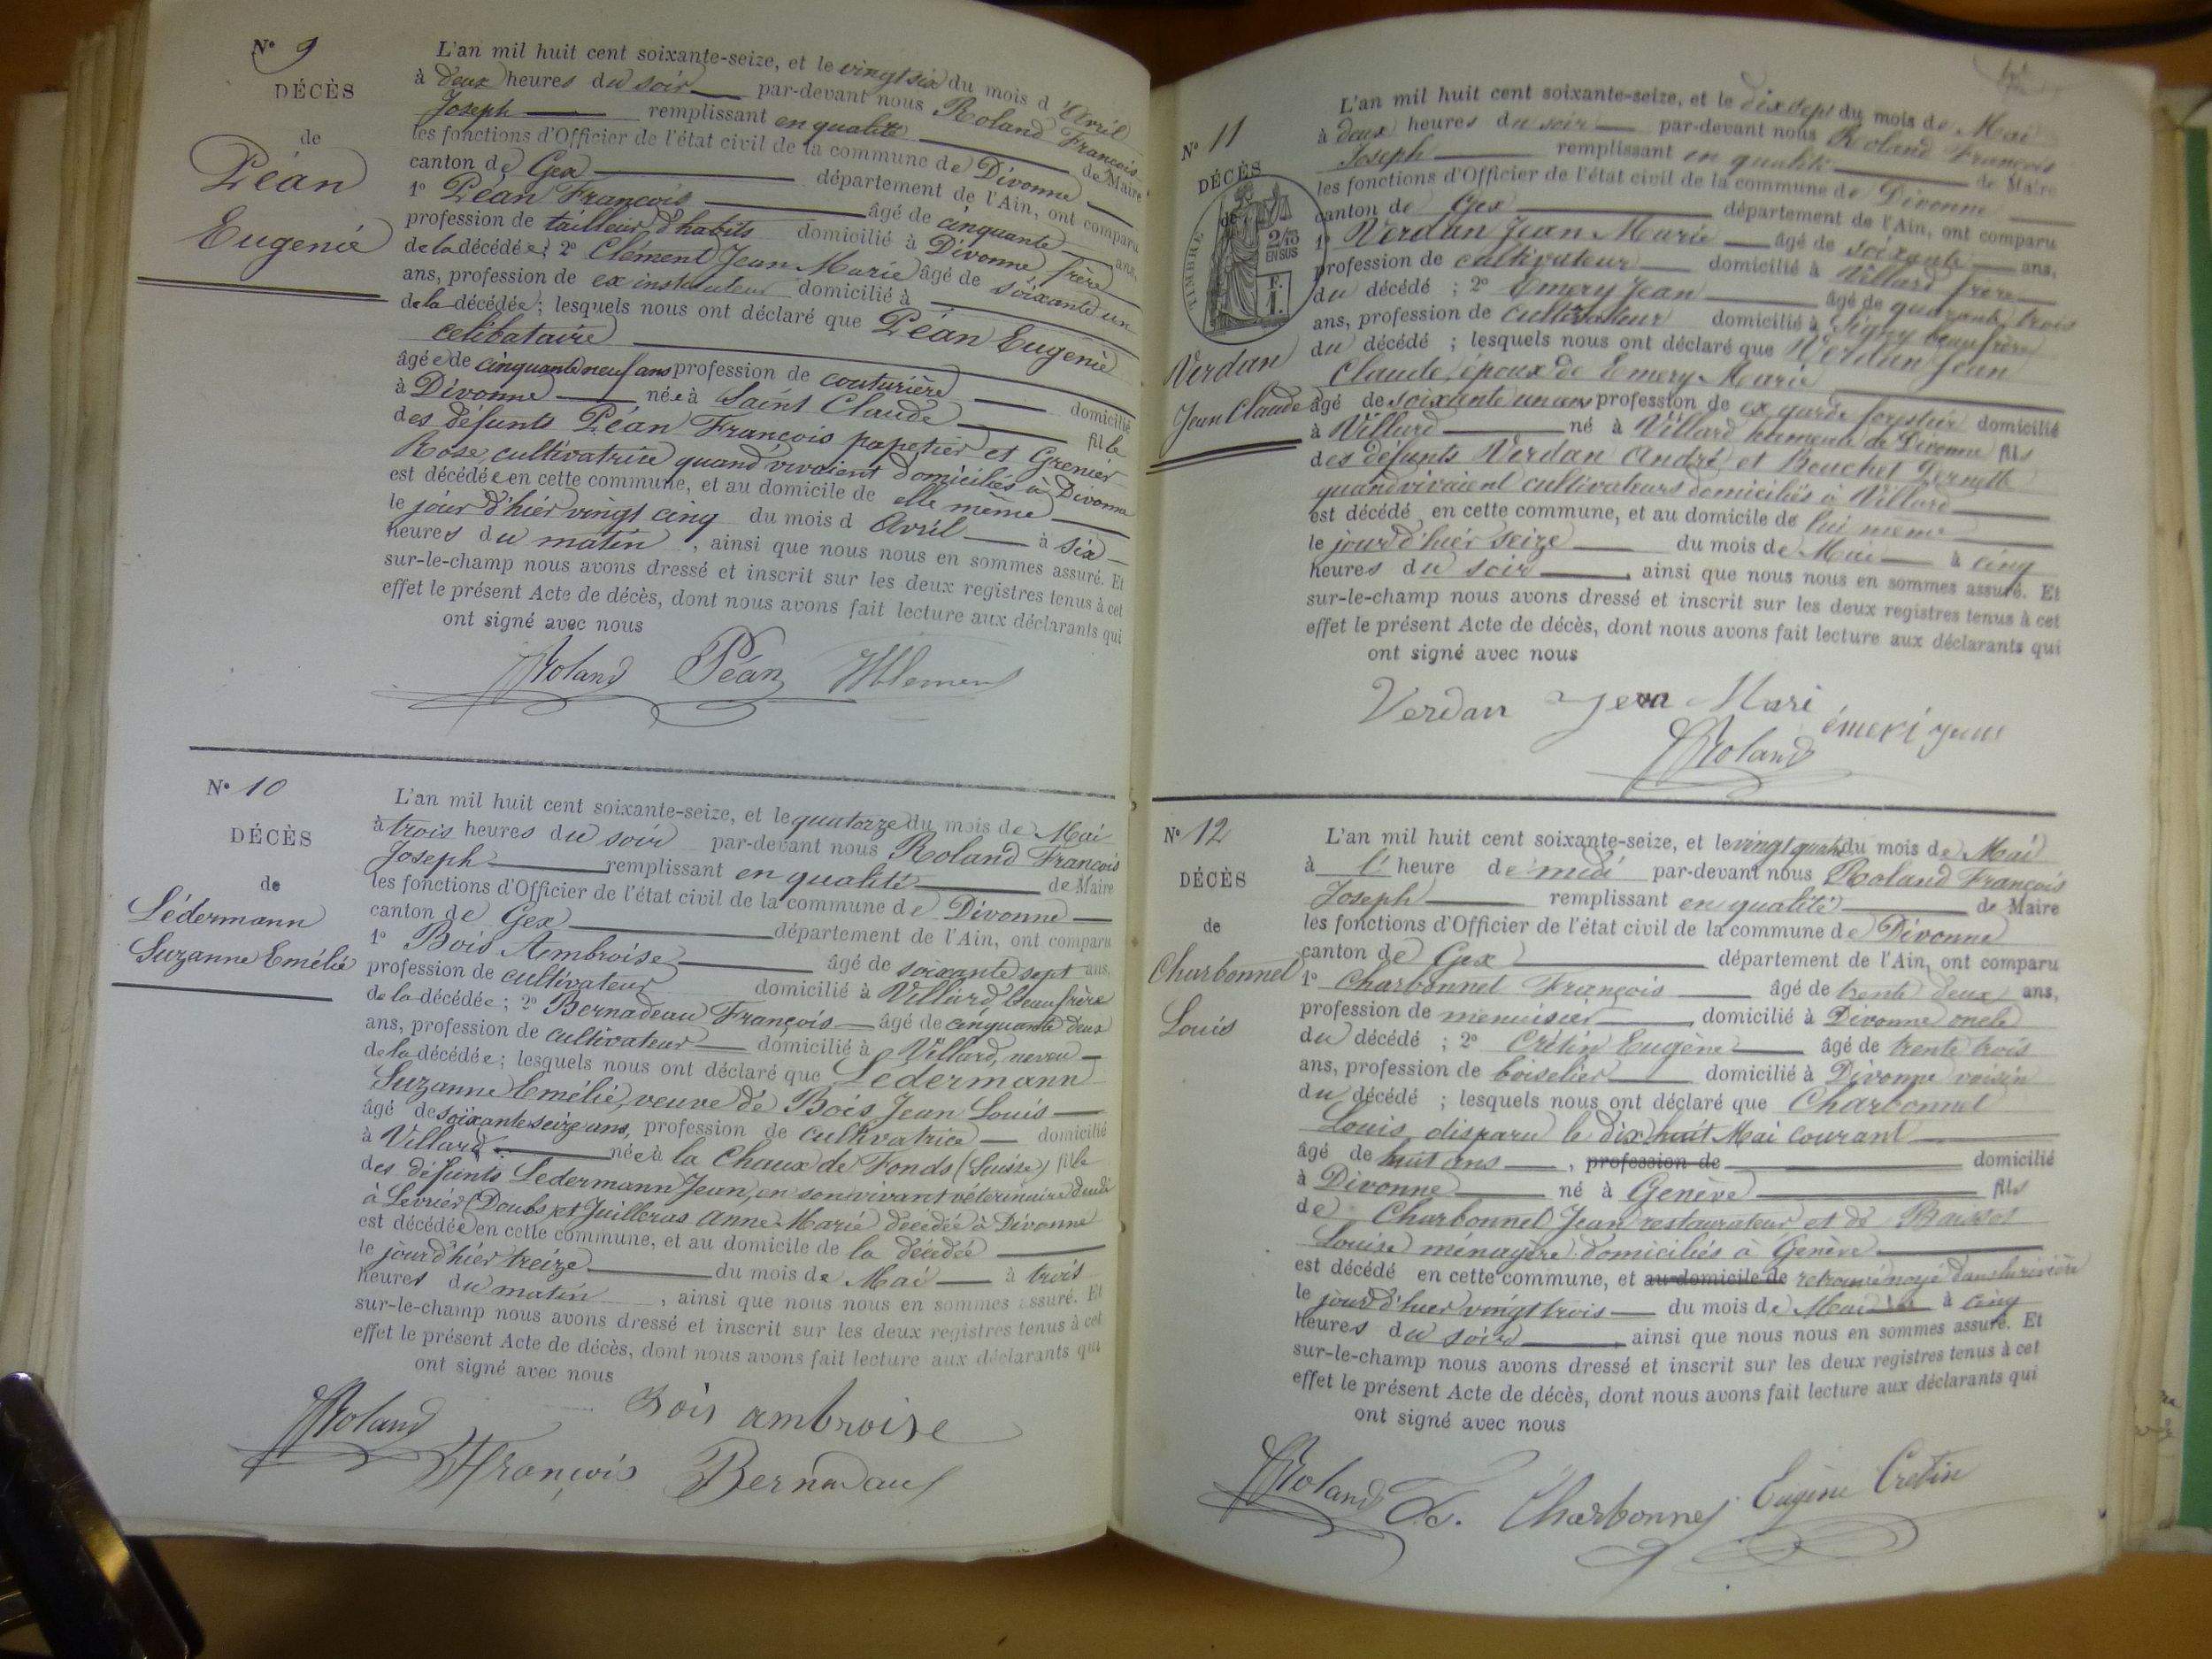 N° 9
DÉCÈS
de
Péan
Eugenie
L'an mil huit cent soixante-seize, et le vingt six du mois d'Avril
à deux heures du soir par-devant nous Roland François
Joseph remplissant en qualité de Maire
les fonctions d'Officier de l'état civil de la commune de Divonne
canton de Gex département de l'Ain, ont comparu
1° Péan François âgé de cinquante ans,
profession de tailleur d'habits domicilié à Divonne, frère
de la décédée; 2° Clément Jean Marie âgé de soixante un
ans, profession de ex instituteur domicilié à
de la décédée; lesquels nous ont déclaré que Péan Eugenie
celibataire
âgée de cinquante neuf ans profession de couturière domicilié
à Divonne née à Saint Claude fille
des défunts Péan François papetier et Grenier
Rose, cultivatrice quand vivaient domiciliés à Divonne
est décédée en cette commune, et au domicile de elle même
le jour d'hier vingt cinq du mois d Avril à six
heures du matin, ainsi que nous nous en sommes assuré. Et
sur-le-champ nous avons dressé et inscrit sur les deux registres tenus à cet
effet le présent Acte de décès, dont nous avons fait lecture aux déclarants qui
ont signé avec nous
Roland Péan
N° 10
DÉCÈS
de
Lédermann
Suzanne Emélie
L'an mil huit cent soixante-seize, et le quatorze du mois de Mai
à trois heures du soir par-devant nous Roland François
Joseph remplissant en qualité de Maire
les fonctions d'Officier de l'état civil de la commune de Divonne
canton de Gex département de l'Ain, ont comparu
1° Bois Ambroise âgé de soixante sept ans,
profession de cultivateur domicilié à Villard beau frère
de la décédée; 2° Bernadeau François âgé de cinquante deux
ans, profession de cultivateur domicilié à Villard, neveu
de la décédée; lesquels nous ont déclaré que Lédermann
Suzanne Emélie, veuve de Bois Jean Louis
âgé de soixante seize ans, profession de cultivatrice domicilié
à Villard née à la Chaux de Fonds (Suisse) fille
des défunts Ledermann Jean, en son vivant véterinaire
à Levrier (Doubs) et Juilleras Anne Marie décédée à Divonne
est décédée en cette commune, et au domicile de la décédée
le jour d'hier treize du mois de Mai à trois
heures du matin, ainsi que nous nous en sommes assuré. Et
sur-le-champ nous avons dressé et inscrit sur les deux registres tenus à cet
effet le présent Acte de décès, dont nous avons fait lecture aux déclarants qui
ont signé avec nous
Bois ambroise
Roland
François Bernadau
N° 11
DÉCÈS
de
TIMBRE
2/10
EN SUS
F.
1.
Verdan
Jean Claude
L'an mil huit cent soixante-seize, et le dix sept du mois de Mai
à deux heures du soir par-devant nous Roland François
Joseph remplissant en qualité de Maire
les fonctions d'Officier de l'état civil de la commune de Divonne
canton de Gex département de l'Ain, ont comparu
1° Verdan Jean Marie âgé de soixante ans,
profession de cultivateur domicilié à Villard frère
du décédé; 2° Emery Jean âgé de quarante trois
ans, profession de cultivateur domicilié à Signy beau frère
du décédé; lesquels nous ont déclaré que Verdan Jean
Claude, époux de Emery Marie
âgé de soixante un ans profession de ex garde forestier domicilié
à Villard né à Villard hameau de Divonne fils
des défunts Verdan André et Bouchet Pernette
quand vivaient cultivateurs domiciliés à Villard
est décédé en cette commune, et au domicile de lui même
le jour d'hier seize du mois de Mai à cinq
heures du soir, ainsi que nous nous en sommes assuré. Et
sur-le-champ nous avons dressé et inscrit sur les deux registres tenus à cet
effet le présent Acte de décès, dont nous avons fait lecture aux déclarants qui
ont signé avec nous
Verdan Jean Mari
Roland
N° 12
DÉCÈS
de
Charbonnel
Louis
L'an mil huit cent soixante-seize, et le vingt quatre du mois de Mai
à 1 heure de midi par-devant nous Roland François
Joseph remplissant en qualité de Maire
les fonctions d'Officier de l'état civil de la commune de Divonne
canton de Gex département de l'Ain, ont comparu
1° Charbonnel François âgé de trente deux ans,
profession de menuisier, domicilié à Divonne oncle
du décédé; 2° Crétin Eugène âgé de trente trois
ans, profession de boiselier domicilié à Divonne voisin
du décédé; lesquels nous ont déclaré que Charbonnel
Louis disparu le dix huit Mai courant
âgé de huit ans, profession de domicilié
à Divonne né à Genève fils
de Charbonnel Jean restaurateur et de
Louise ménagère domiciliés à Genève
est décédé en cette commune, et au domicile de retrouvé noyé dans la rivière
le jour d'hier vingt trois du mois de Mai à cinq
heures du soir, ainsi que nous nous en sommes assuré. Et
sur-le-champ nous avons dressé et inscrit sur les deux registres tenus à cet
effet le présent Acte de décès, dont nous avons fait lecture aux déclarants qui
ont signé avec nous
Roland Charbonnel Eugène Cretin